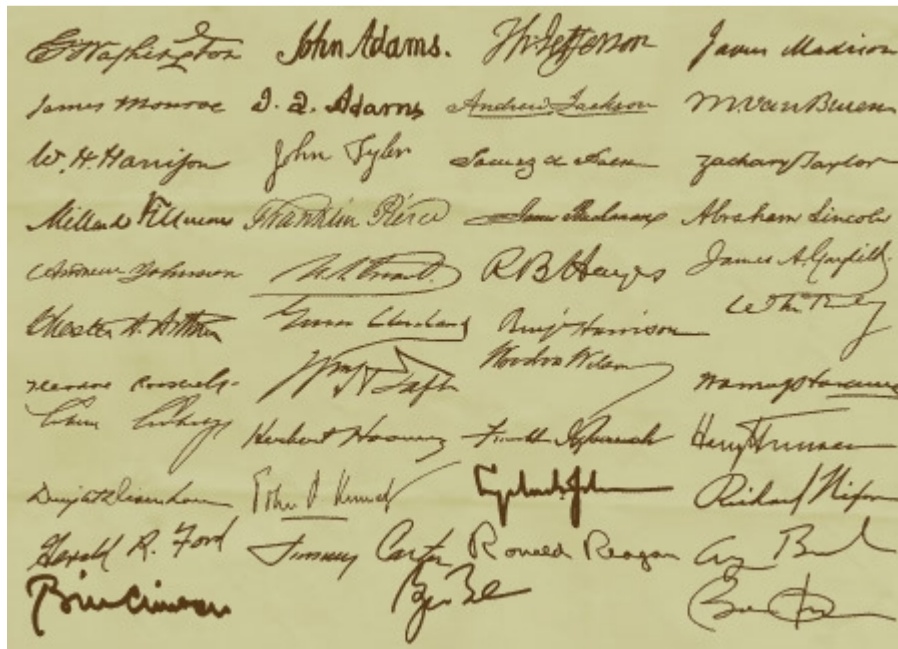 G Washington John Adams. Th Jefferson James Madison
James Monroe J. Q. Adams Andrew Jackson M. Van Buren
W. H. Harrison John Tyler James K Polk Zachary Taylor
Millard Fillmore Franklin Pierce James Buchanan Abraham Lincoln
Andrew Johnson U. S. Grant R B Hayes James A. Garfield
Chester A. Arthur Grover Cleveland Benj Harrison Wm McKinley
Theodore Roosevelt Wm H Taft Woodrow Wilson Warren G Harding
Calvin Coolidge Herbert Hoover Franklin D Roosevelt Harry Truman
Dwight D Eisenhower John F Kennedy Lyndon B. Johnson Richard Nixon
Gerald R. Ford Jimmy Carter Ronald Reagan
Bill Clinton